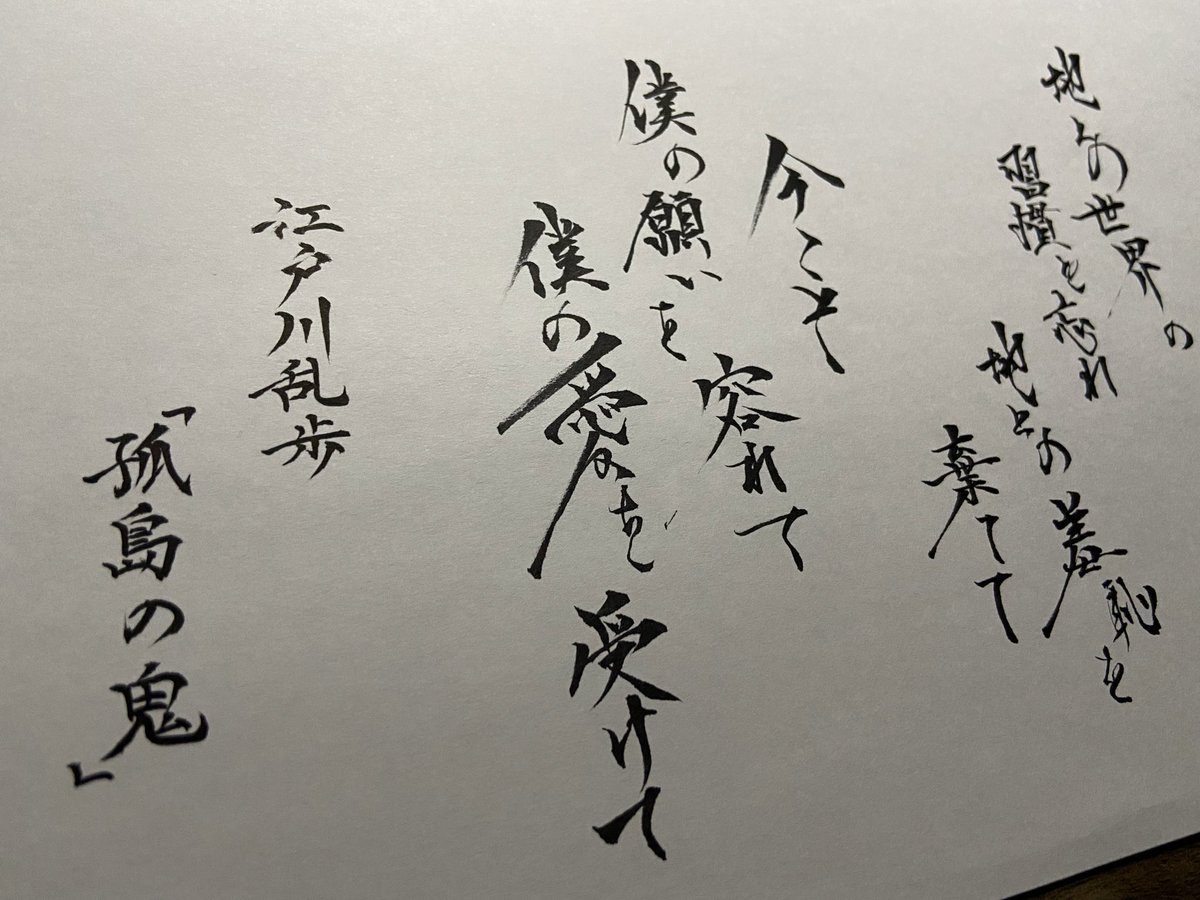 地上の世界の
習慣を忘れ
地上の羞恥を
棄てて
今こそ
僕の願いを容れて
僕の愛を受けて
江戸川乱歩
「孤島の鬼」